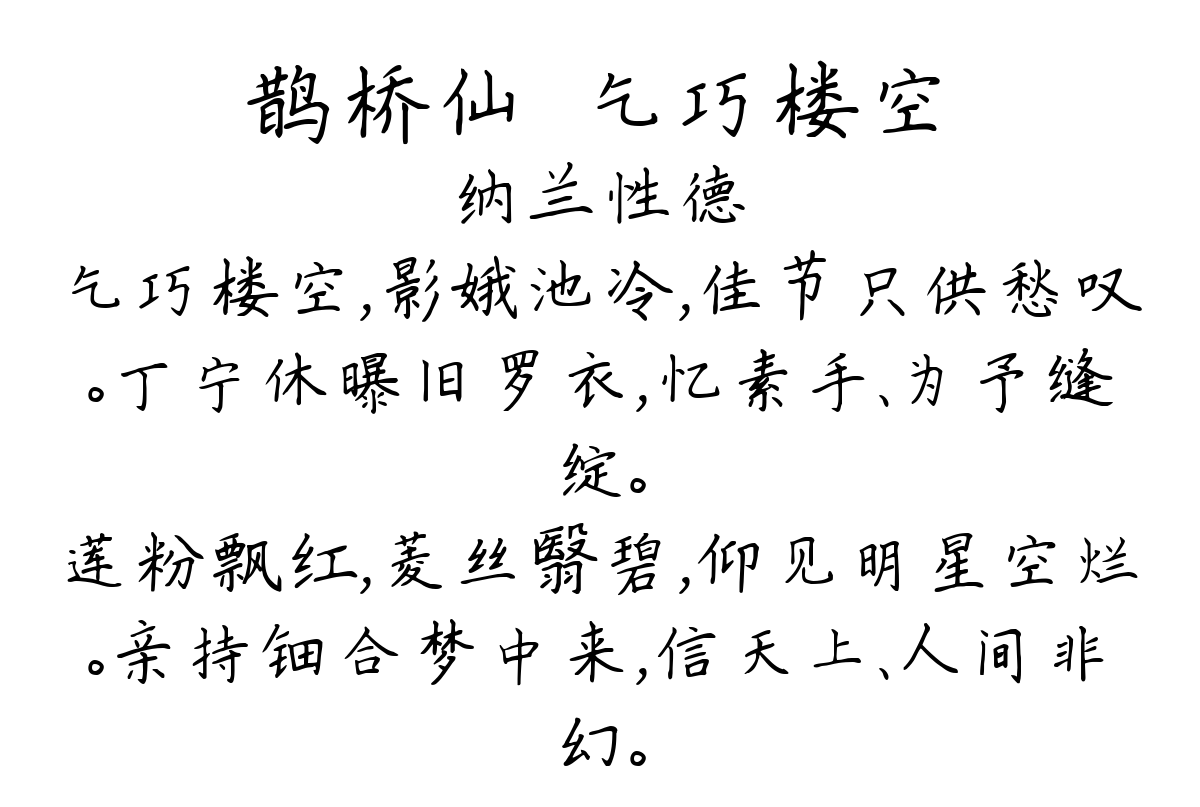 鹊桥仙 乞巧楼空
纳兰性德
乞巧楼空,影娥池冷,佳节只供愁叹
。丁宁休曝旧罗衣,忆素手、为予缝
绽。
莲粉飘红,菱丝翳碧,仰见明星空烂
。亲持钿合梦中来,信天上、人间非
幻。